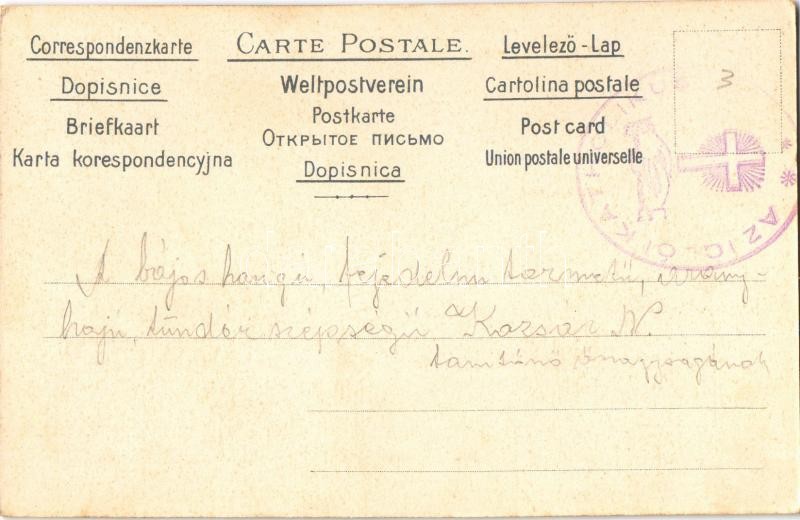 Correspondenzkarte
Dopisnice
Briefkaart
Karta korespondencyjna
CARTE POSTALE.
Weltpostverein
Postkarte
Открытое письмо
Dopisnica
Levelező-Lap
Cartolina postale
Post card
Union postale universelle
3
AZ IGLÓI KATH.
A bájos hangú, fejedelmi termetű, arany-
hajú, tündér szépségű Kozsár N.
tanítónő őnagyságának